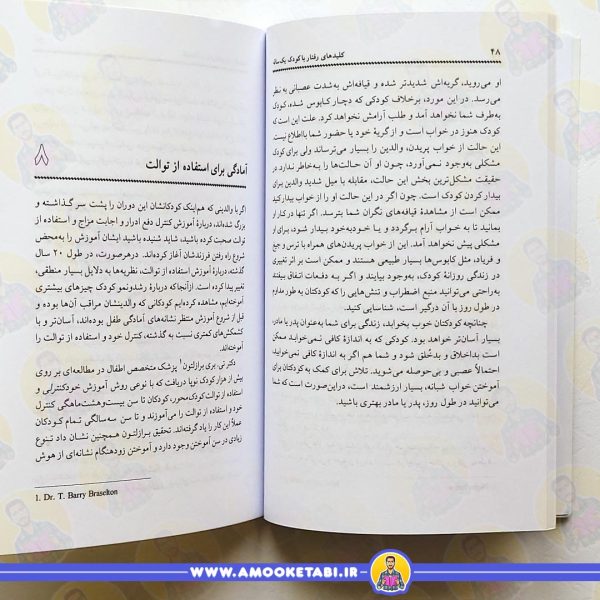 ۴۸
کلیدهای رفتار با کودک یک ساله
او می‌روید، گریه‌اش شدیدتر شده و قیافه‌اش به‌شدت عصبانی به نظر
می‌رسد. در این مورد، برخلاف کودکی که دچار کابوس شده، کودک
به‌طرف شما نخواهد آمد و طلب آرامش نخواهد کرد. علت این است که
کودک هنوز در خواب است و از گریهٔ خود یا حضور شما بااطلاع نیست.
این حالت از خواب پریدن، والدین را بسیار می‌ترساند ولی برای کودک
مشکلی به‌وجود نمی‌آورد، چون او آن حالت‌ها را به‌خاطر ندارد. در
حقیقت مشکل‌ترین بخش این حالت، مقابله با میل شدید والدین برای
بیدار کردن کودک است. چون اگر در این حالت او را از خواب بیدار کنید
ممکن است از مشاهدهٔ قیافه‌های نگران شما بترسد. اگر تنها در کنار او
بمانید تا به خواب آرام برگردد و یا خودبه‌خود بیدار شود، برای او
مشکلی پیش نخواهد آمد. این از خواب پریدن‌های همراه با ترس و جیغ
و فریاد، مثل کابوس‌ها بسیار طبیعی هستند و ممکن است بر اثر تغییری
در زندگی روزانهٔ کودک، به‌وجود بیایند و اگر به دفعات اتفاق بیفتند
به‌راحتی می‌توانید منبع اضطراب و تنش‌هایی را که کودکتان به طور مداوم
در طول روز با آن درگیر است، شناسایی کنید.
چنانچه کودکتان خوب بخوابد، زندگی برای شما به‌عنوان پدر یا مادر،
بسیار آسان‌تر خواهد بود. کودکی که به اندازهٔ کافی نمی‌خوابد ممکن
است بداخلاق و بدخُلق شود و شما هم اگر به اندازهٔ کافی نمی‌خوابید،
احتمالاً عصبی و بی‌حوصله می‌شوید. تلاش برای کمک به کودکتان برای
آموختن خواب شبانه، بسیار ارزشمند است، در‌این‌صورت است که شما
می‌توانید در طول روز، پدر یا مادر بهتری باشید.
۸
آمادگی برای استفاده از توالت
اگر با والدینی که هم‌اینک کودکانشان این دوران را پشت سر گذاشته و
بزرگ شده‌اند، دربارهٔ آموزش کنترل دفع ادرار و اجابت مزاج و استفاده از
توالت صحبت کرده باشید، شاید شنیده باشید ایشان آموزش را به‌محض
شروع راه رفتن فرزندشان آغاز کرده‌اند. درهرصورت، در طول ۲۰ سال
گذشته، دربارهٔ آموزش استفاده از توالت، نظریه‌ها به دلایل بسیار منطقی،
تغییر پیدا کرده است. ازآنجاکه دربارهٔ رشدونمو کودک چیزهای بیشتری
آموخته‌ایم، مشاهده کرده‌ایم کودکانی که والدینشان مراقب آن‌ها بوده و
قبل از شروع آموزش منتظر نشانه‌های آمادگی طفل بوده‌اند، آسان‌تر و با
کشمکش‌های کمتری نسبت به گذشته، کنترل خود و استفاده از توالت را
آموخته‌اند.
دکتر تی. بری برازلتون۱ پزشک متخصص اطفال در مطالعه‌ای بر روی
بیش از هزار کودک نوپا دریافت که با نوعی روش آموزش خودکنترلی و
استفاده از توالت کودک‌محور، کودکان تا سن بیست‌وهشت‌ماهگی کنترل
خود و استفاده از توالت را می‌آموزند و تا سن سه‌سالگی تمام کودکان
عملاً این کار را یاد گرفته‌اند. تحقیق برازلتون همچنین نشان داد تنوع
زیادی در سن آموختن وجود دارد و آموختن زودهنگام نشانه‌ای از هوش
1. Dr. T. Barry Braselton
WWW.AMOOKETABI.IR